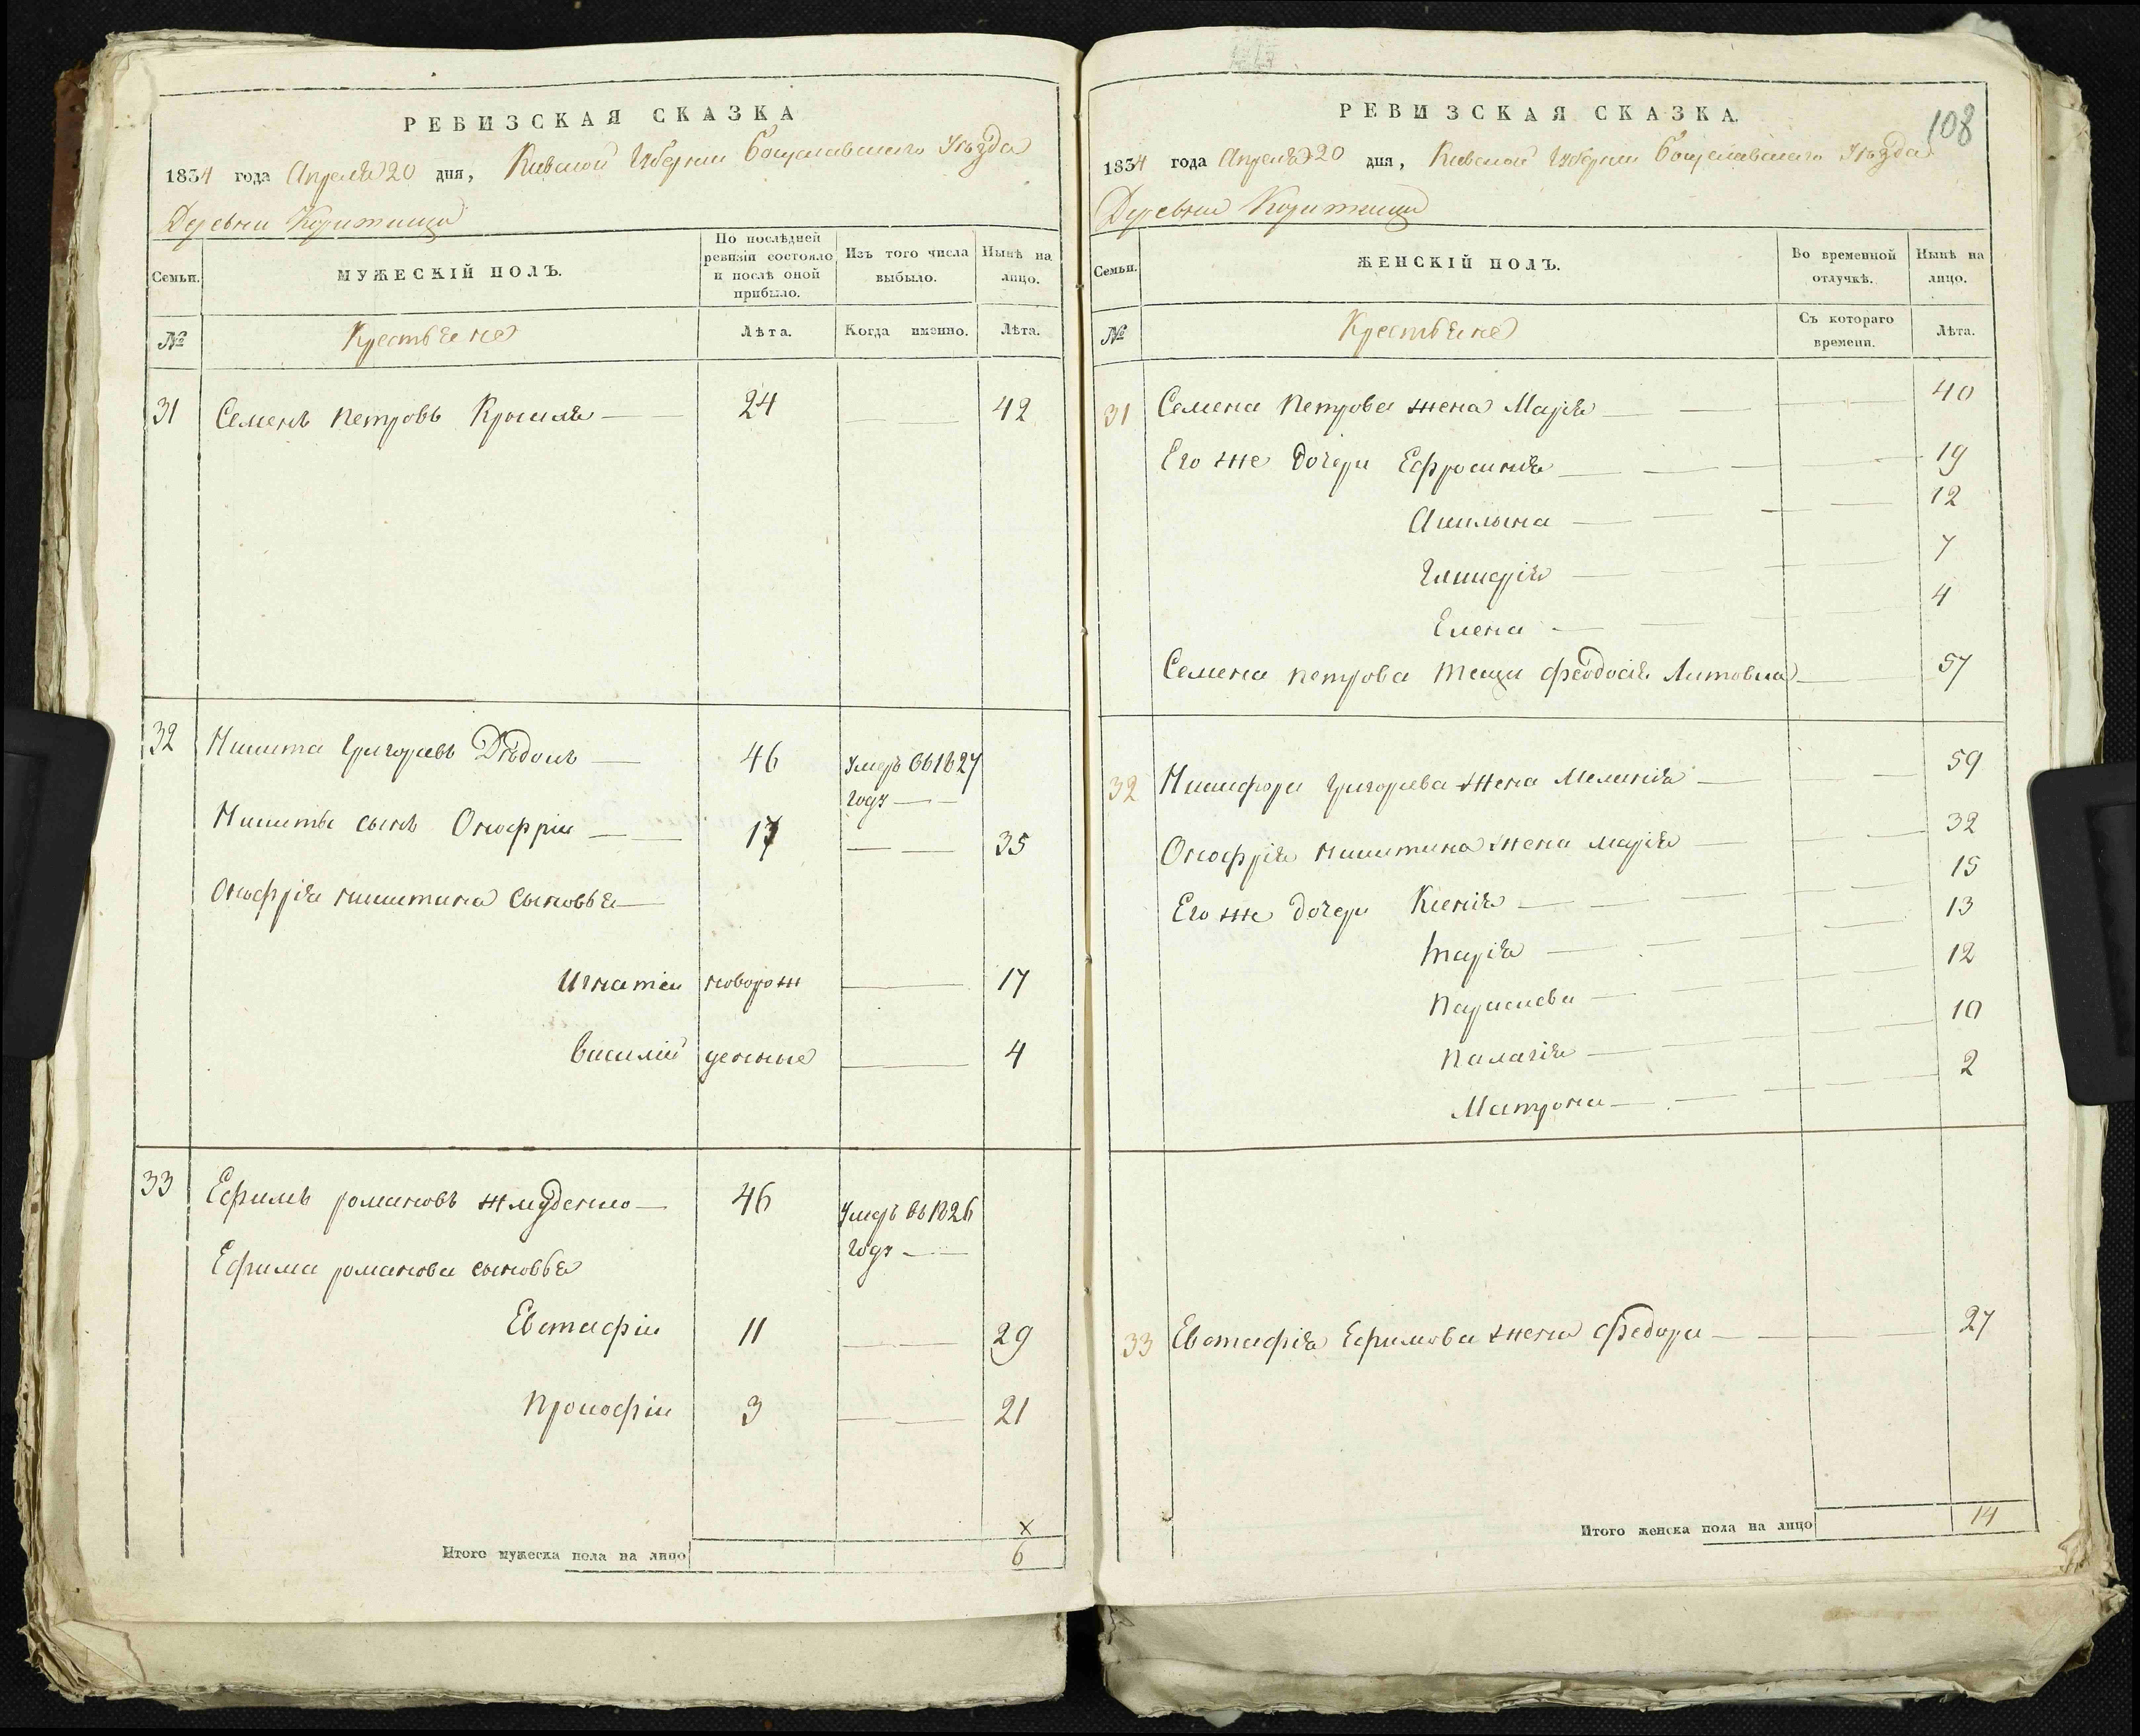 РЕВИЗСКАЯ СКАЗКА
1834 года Апреля 20 дня, Киевской Губернии Богуславского Уѣзда
Деревни
Семьи.
МУЖЕСКІЙ ПОЛЪ.
По послѣдней ревизіи состояло и послѣ оной прибыло.
Изъ того числа выбыло.
Нынѣ на лицо.
№
Крестьяне
Лѣта.
Когда именно.
Лѣта.
31 Семенъ Петровъ 24 — — 42
32 Никита Григорьевъ Дѣдокъ — 46 Умеръ въ 1827
годѵ — —
Никиты сынъ Онофрiи — — 17 — — 35
Онофрія Никитина сыновья —
Игнатіи новорож — 17
Василій денные — 4
33 Ефимъ романовъ Жмуденко — 46 Умеръ въ 1826
годѵ — —
Ефима романова сыновья
Евстафіи 11 — — 29
Прокофіи 3 — — 21
х
Итого мужеска пола на лицо 6
108
РЕВИЗСКАЯ СКАЗКА.
1834 года Апреля 20 дня, Киевской Губернии Богуславского Уѣзда
Деревни
Семьи.
ЖЕНСКІЙ ПОЛЪ.
Во временной отлучкѣ.
Нынѣ на лицо.
№
Крестьяне
Съ котораго времени.
Лѣта.
31 Семена Петрова жена Марія — — — 40
Его же дочери Ефросинія — — — 19
Акилына — — — 12
Гликерія — — — 7
Елена — — — 4
Семена петрова теща Феодосія Литовка — 57
32 Никифора Григорьева жена Меланія — — — 59
Онофрія Никитина жена марія — — — 32
Его же дочери Ксенія — — — 15
марія — — — 13
Параскева — — — 12
Палагія — — — 10
Матрона — — — 2
33 Евстафія Ефимова жена Федора — — 27
Итого женска пола на лицо 14